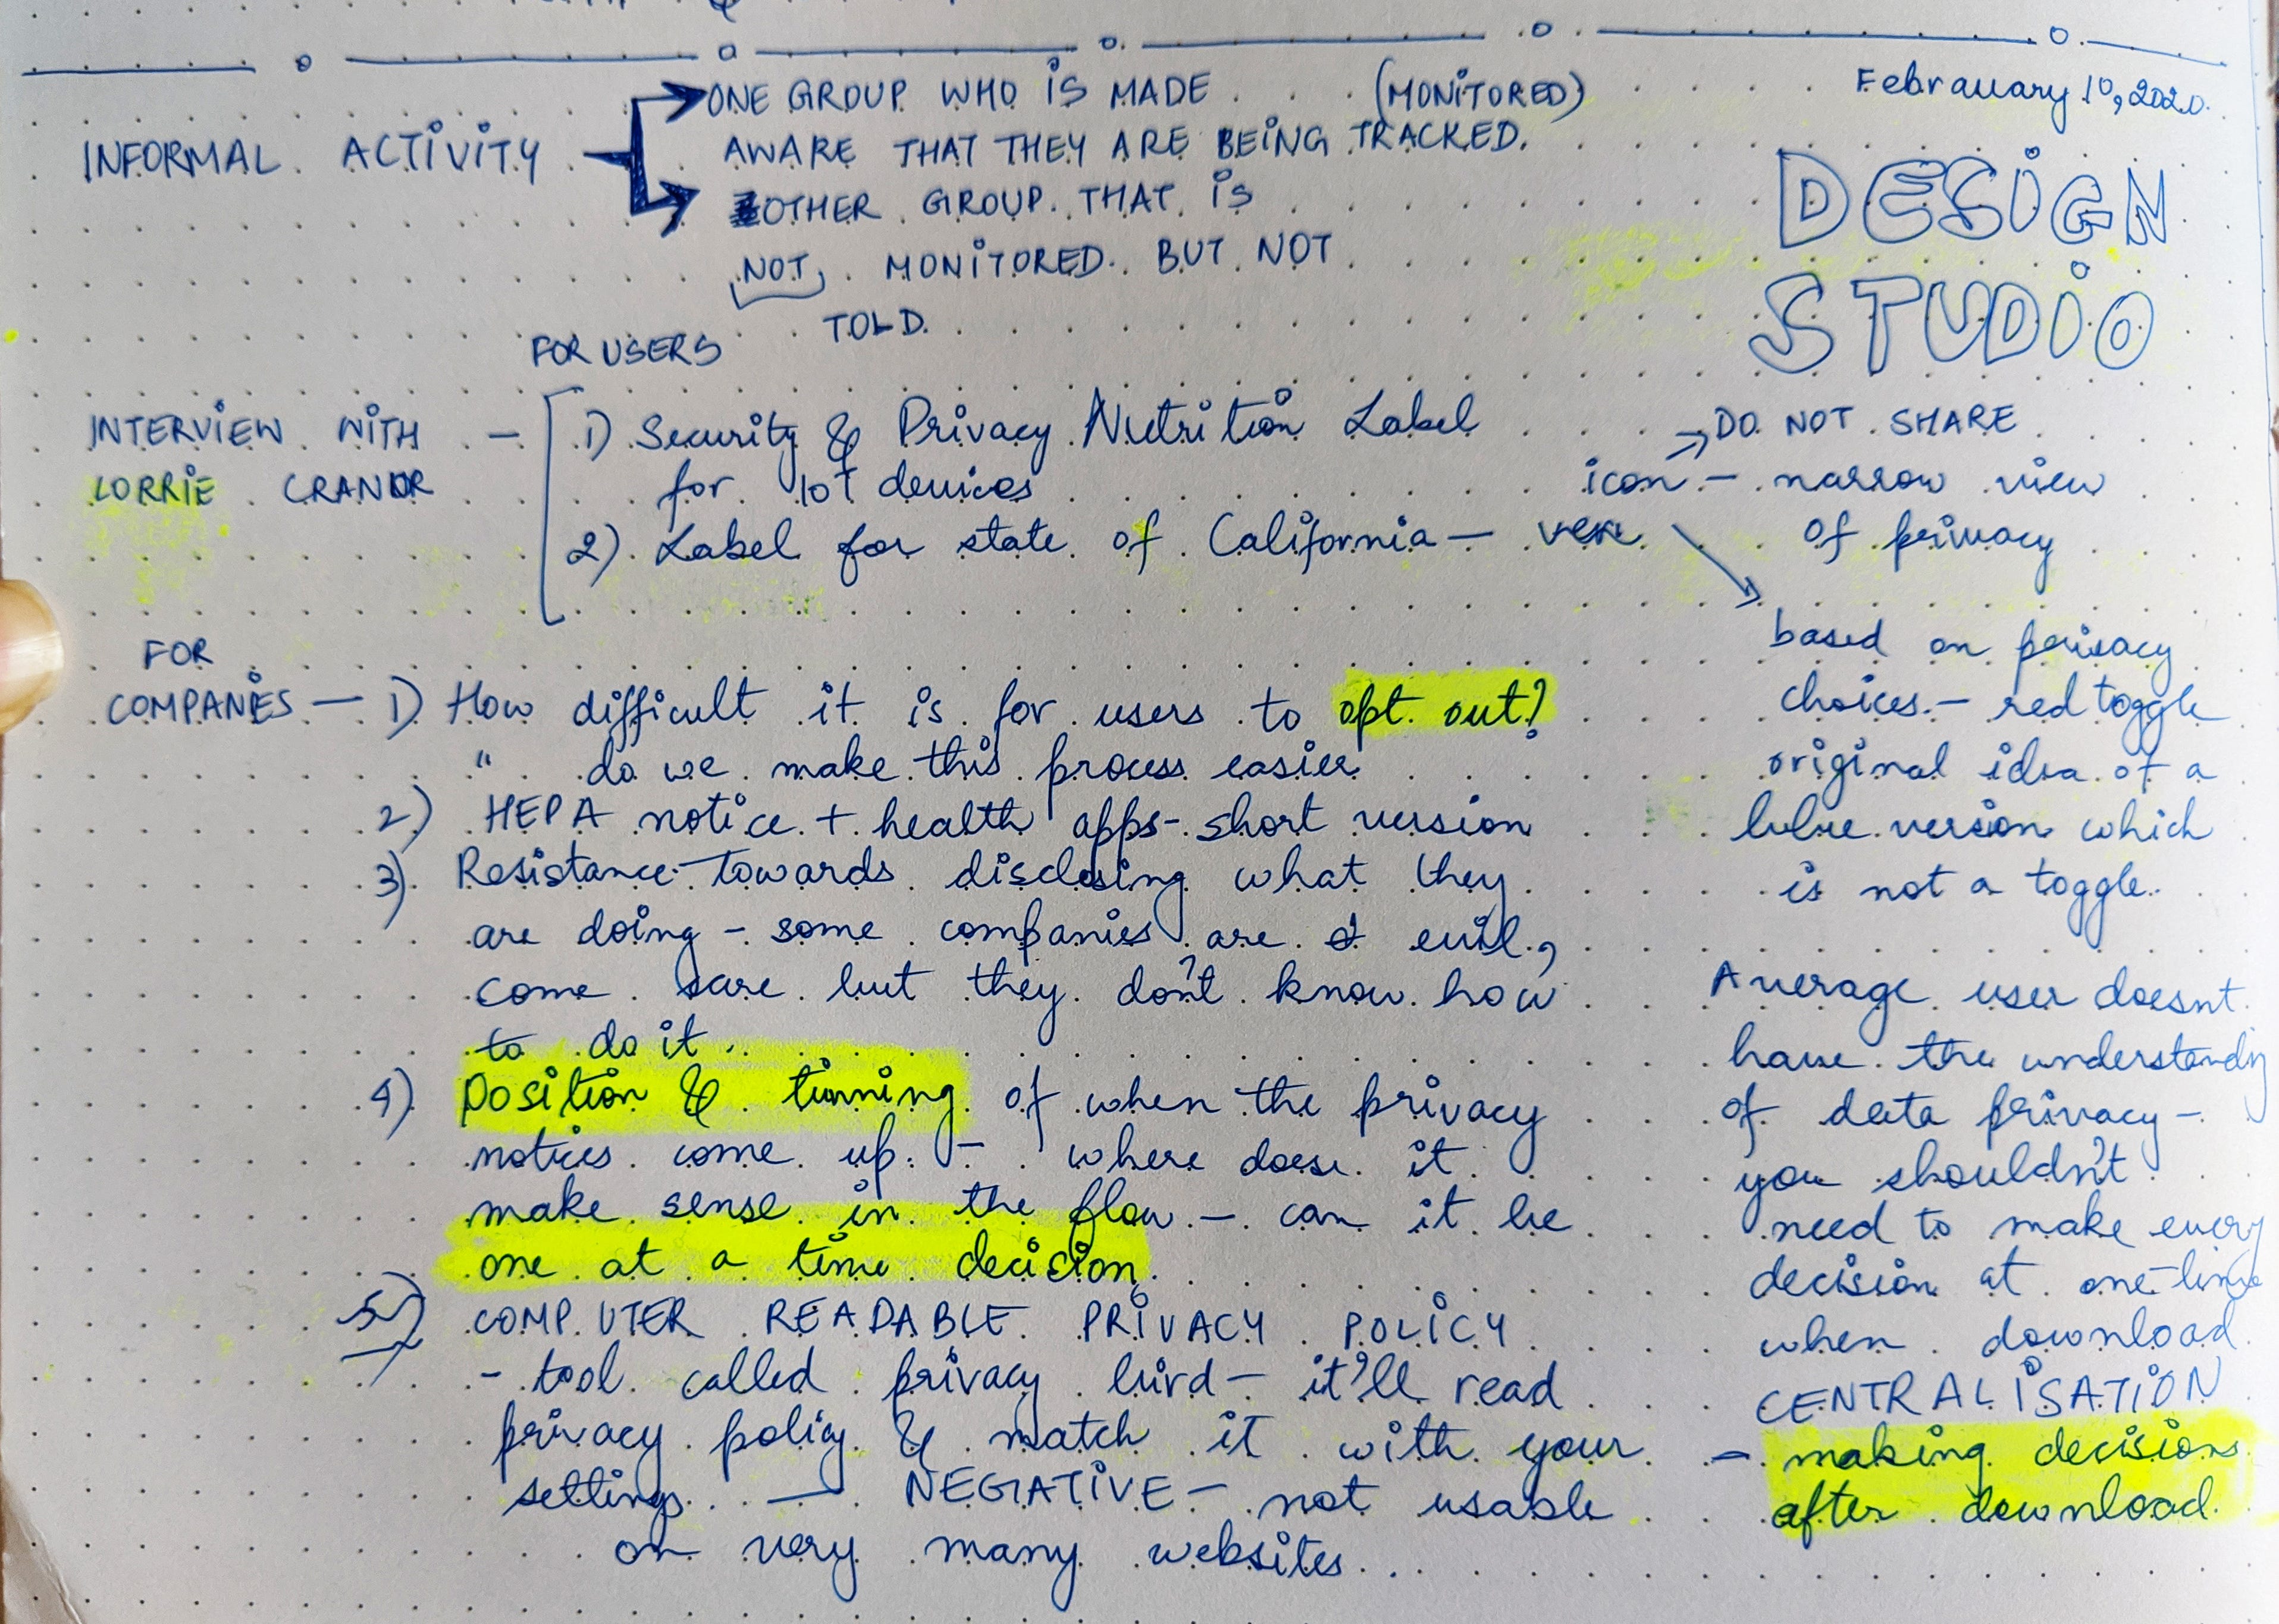 Febrauary 10, 2020.
DESIGN
STUDIO
INFORMAL ACTIVITY
ONE GROUP WHO IS MADE (MONITORED)
AWARE THAT THEY ARE BEING TRACKED.
OTHER GROUP THAT IS
NOT MONITORED BUT NOT
TOLD.
FOR USERS
INTERVIEW WITH
LORRIE CRANOR
1) Security & Privacy Nutrition Label
for IoT devices
2) Label for state of California —
icon
DO NOT SHARE
— narrow view
of privacy
based on privacy
choices — red toggle
original idea of a
blue version which
is not a toggle.
FOR
COMPANIES — 1) How difficult it is for users to opt out?
" do we make this process easier
2) HEPA notice + health apps - short version
3) Resistance towards disclosing what they
are doing - some companies are evil,
come but they don't know how
to do it..
4) Position & timming of when the privacy
notices come up. - where does it
make sense in the flow. — can it be
one at a time decision.
5) COMPUTER READABLE PRIVACY POLICY
- tool called privacy bird — it'll read
privacy policy & match it with your
settings. — NEGATIVE — not usable
on very many websites...
Average user doesnt
have the understanding
of data privacy —
you shouldn't
need to make every
decision at one-time
when download
CENTRALISATION
— making decisions
after download.